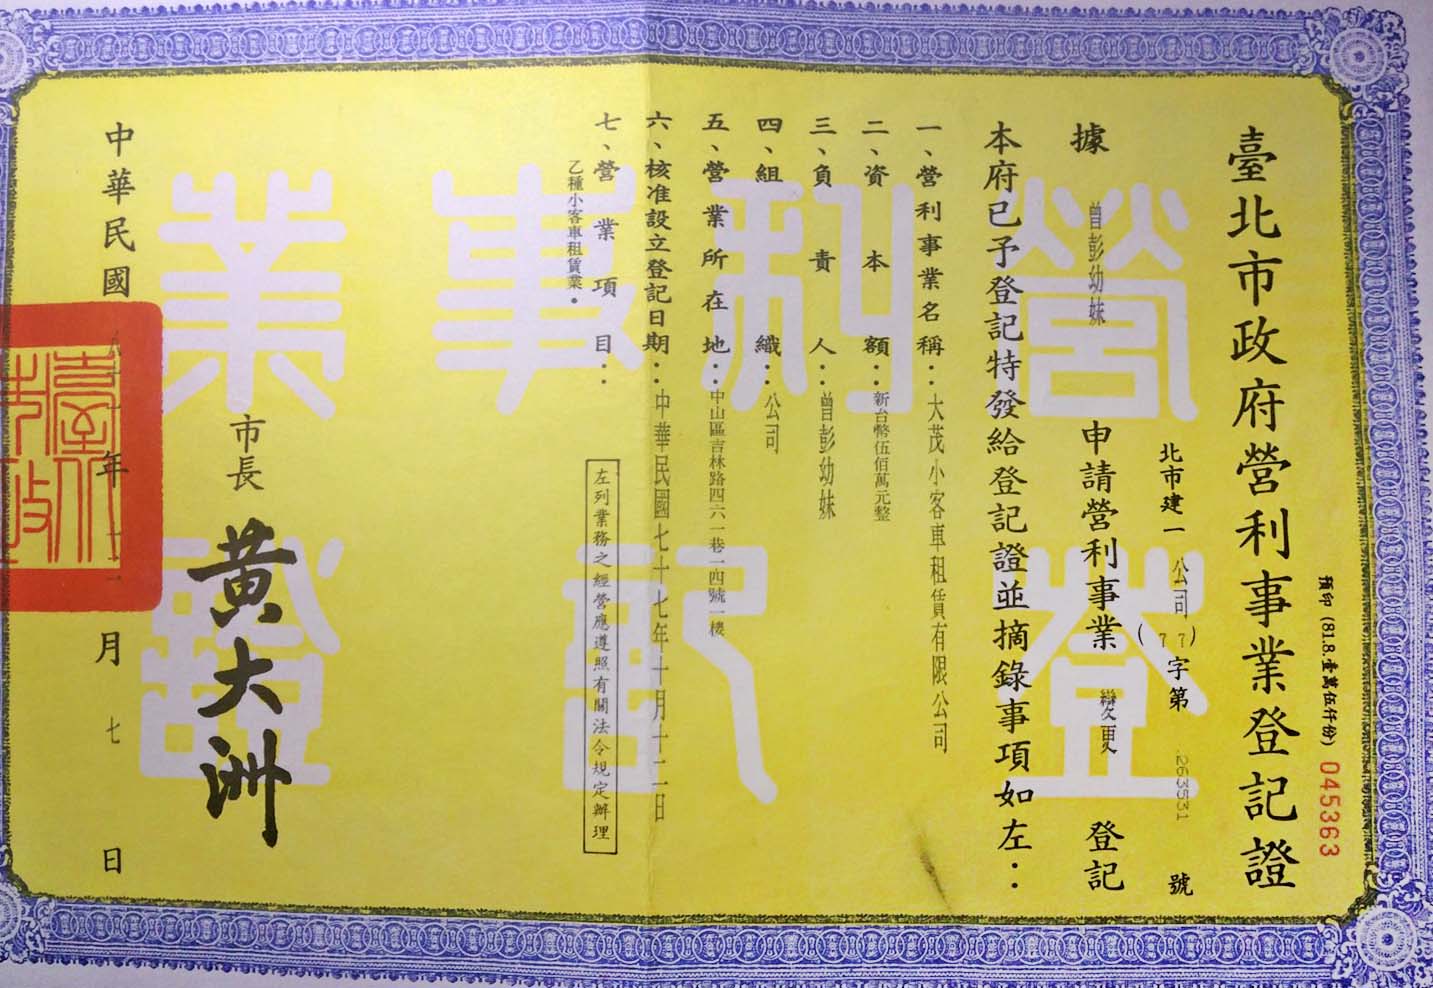 臺北市政府營利事業登記證
預印 (81.8.壹萬伍仟份) 045363
北市建一公司(77)字第 263531 號
據 曾彭幼妹 申請營利事業 變更 登記
本府已予登記特發給登記證並摘錄事項如左：
一、營利事業名稱：大茂小客車租賃有限公司
二、資本額：新台幣伍佰萬元整
三、負責人：曾彭幼妹
四、組織：公司
五、營業所在地：中山區吉林路四六一巷一四號一樓
六、核准設立登記日期：中華民國七十七年十月十二日
七、營業項目：
乙種小客車租賃業。
左列業務之經營應遵照有關法令規定辦理
市長 黃大洲
中華民國 八十 年 十一 月 七 日
營利事業
登記證